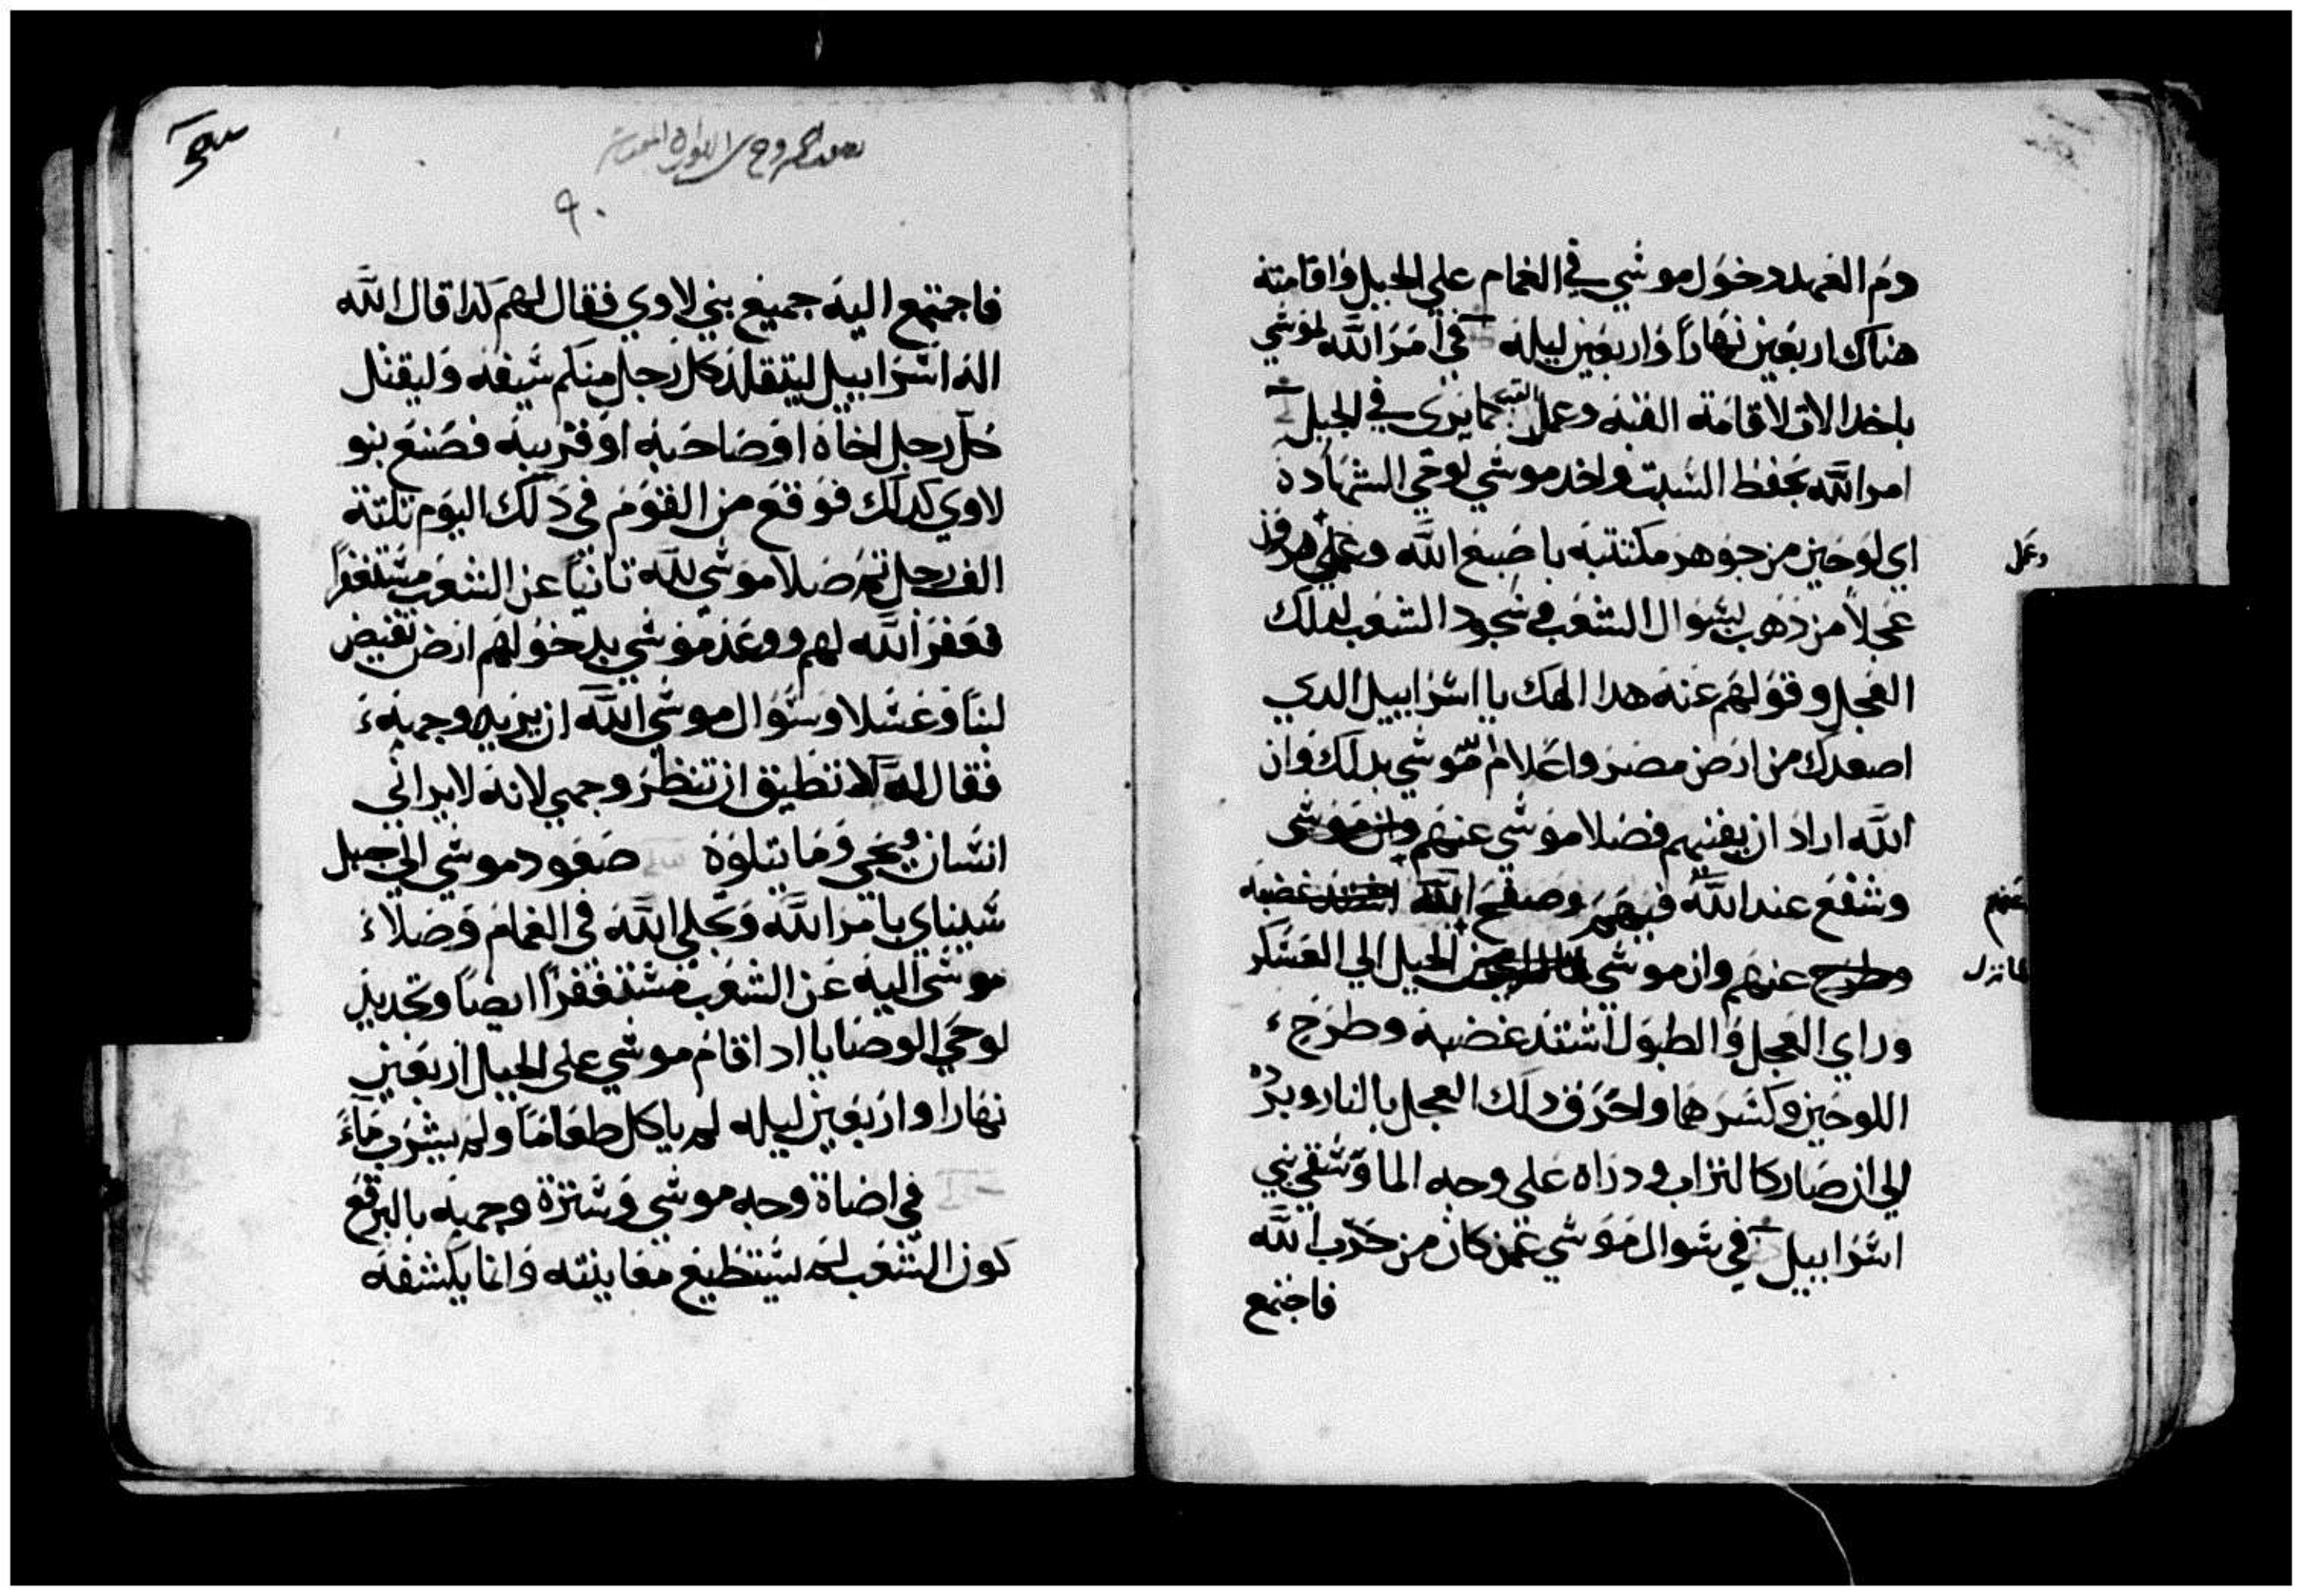 ودم العهد ودخول موشي في الغمام علي الجبل واقامته
هناك اربعين نهاراً واربعين ليله في امر الله لموشي
باخد الالات لاقامة القبه وعمل القبه كما يرى في الجبل
امر الله بحفظ السبت واخد موشي لوحي الشهادة
اي لوحين من جوهر مكتتبه باصبع الله وعمل هرون
وعمل
عجلاً من ذهب بسوال الشعب في سجود الشعب لدلك
العجل وقولهم عنه هدا الهك يا اسراييل الدي
اصعدك من ارض مصر واعلام موشي بدلك وان
الله اراد ان يفنيهم فصلا موشي عنهم وان موشى
وشفع عند الله فيهم وصفح الله اشتد غضبه
عنهم
وطرح عنهم وان موشي من الجبل الي العسكر
لما نزل
وراي العجل والطبول اشتد غضبه وطرح
اللوحين وكسرهما واحرق دلك العجل بالنار وبرده
الي ان صار كالتراب ودراه على وجه الما وسقي بني
اسراييل في سوال موشي عمن كان من حزب الله
فاجتمع
٩٠
فاجتمع اليه جميع بني لاوي فقال لهم كدا قال الله
اله اسراييل ليتقلد كل رجل منكم سيفه وليقتل
كل رجل اخاه او صاحبه او قريبه فصنع بنو
لاوي كدلك فوقع من القوم في دلك اليوم تلتة
الف رجل تم صلا موشي لله تانياً عن الشعب مستغفراً
فغفر الله لهم ووعد موشي بدخولهم ارض تفيض
لبناً وعسلا وسوال موشي الله ان يريه وجهه
فقال له لا تطيق ان تنظر وجهي لانه لا يراني
انسان ويحيى وما يتلوه صعود موشي الي جبل
سيناي بامر الله وتجلي الله في الغمام وصلاء
موشى اليه عن الشعب مستغفراً ايضاً وتجديد
لوحي الوصايا اد اقام موشي على الجبل اربعين
نهارا واربعين ليله لم ياكل طعاماً ولم يشرب مآءً
في اضاة وجه موشي وسترة وجهه بالبرقع
كون الشعب لم يستطيع معاينته وانما يكشفه